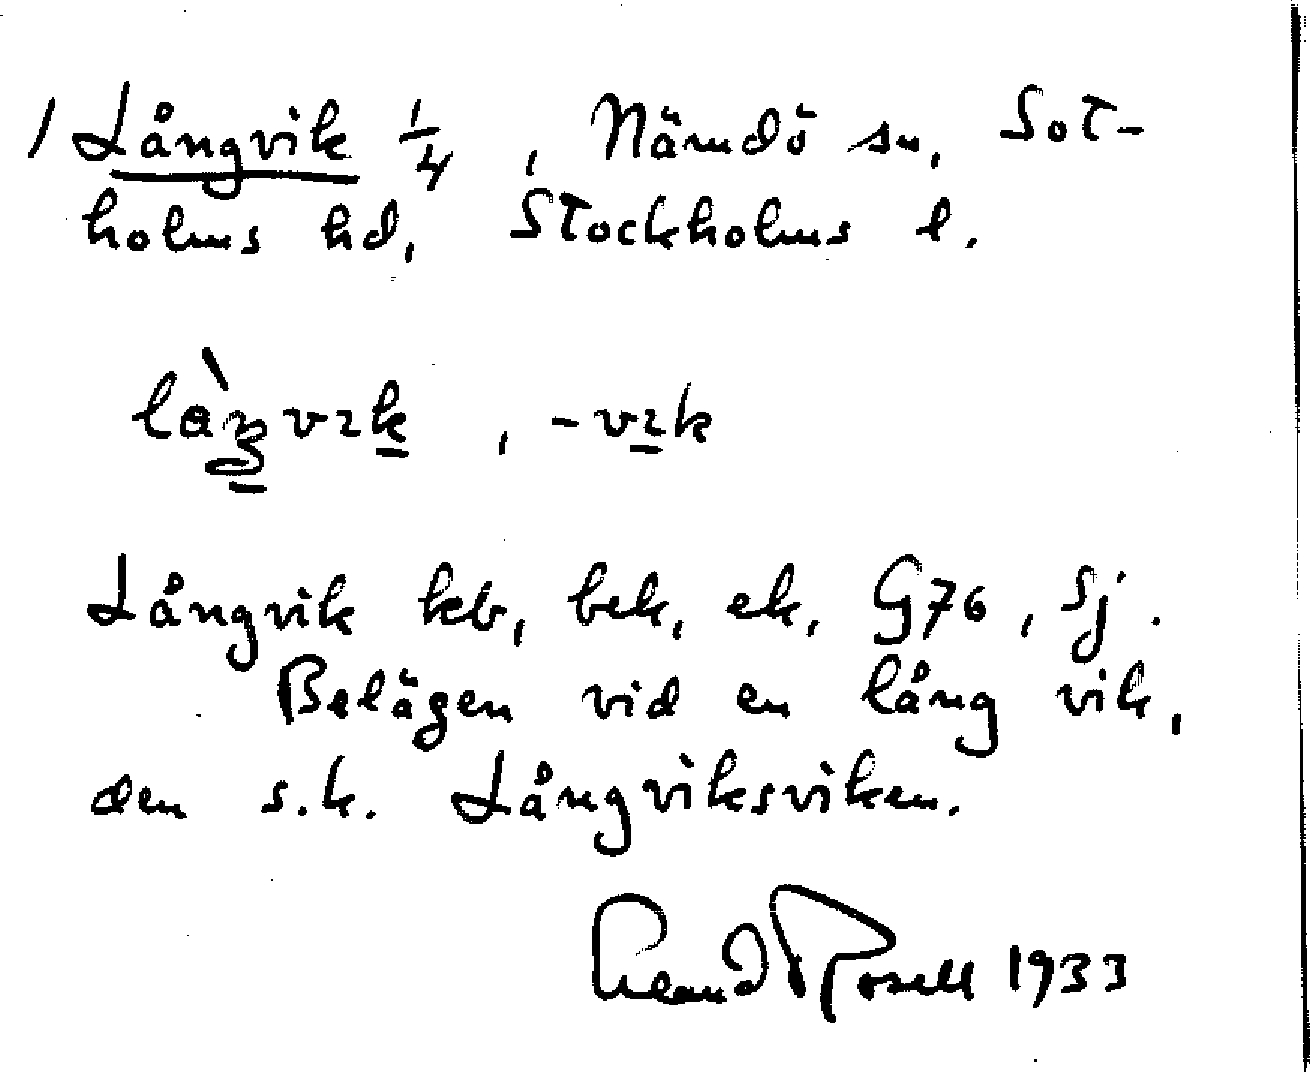 / Långvik 1/4, Nämdö sn, Sot-
holms hd, Stockholms l.
-vık
Långvik kb, bek, ek, G76, Sj.
Belägen vid en lång vik,
den s.k. Långviksviken.
Rosell 1933